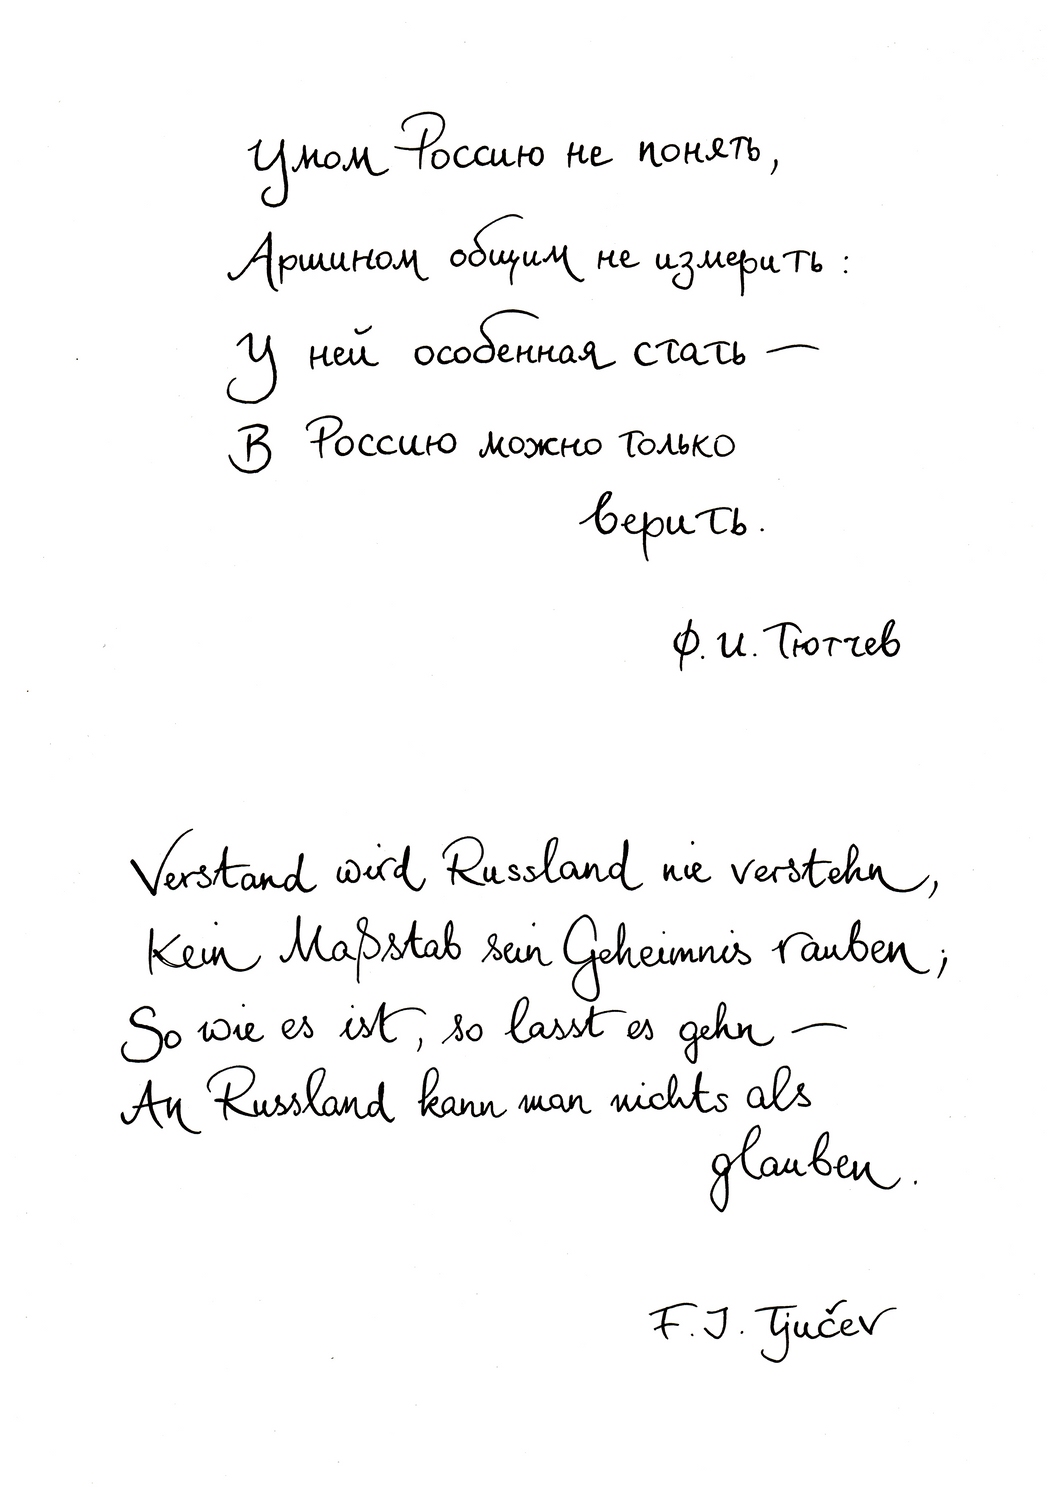 Умом Россию не понять,
Аршином общим не измерить:
У ней особенная стать —
В Россию можно только
верить.
Ф. И. Тютчев
Verstand wird Russland nie verstehn,
Kein Maßstab sein Geheimnis rauben;
So wie es ist, so lasst es gehn —
An Russland kann man nichts als
glauben.
F. J. Tjučev